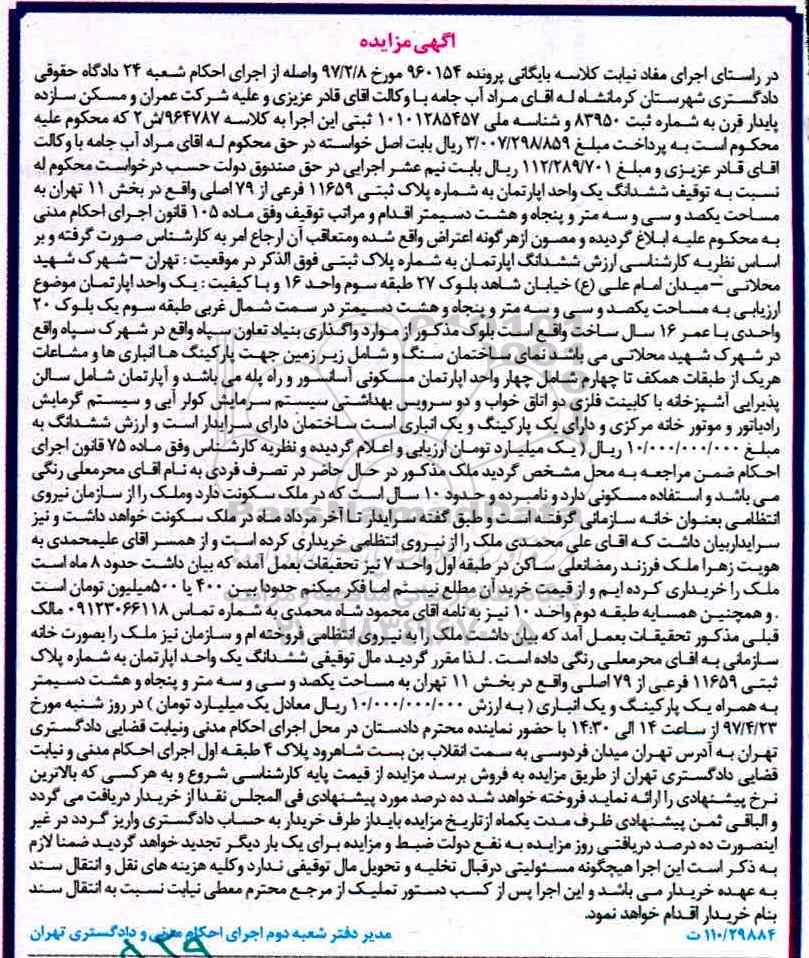 آگهی مزایده
در راستای اجرای مفاد نیابت کلاسه بایگانی پرونده ۹۶۰۱۵۴ مورخ ۹۷/۲/۸ واصله از اجرای احکام شعبه ۲۴ دادگاه حقوقی
دادگستری شهرستان کرمانشاه له آقای مراد آب جامه با وکالت آقای قادر عزیزی و علیه شرکت عمران و مسکن سازده
پایدار قرن به شماره ثبت ۸۳۹۵۰ و شناسه ملی ۱۰۱۰۱۲۸۵۴۵۷ ثبتی این اجرا به کلاسه ۹۶۴۷۸۷/ش۲ که محکوم علیه
محکوم است به پرداخت مبلغ ۳/۰۰۷/۲۹۸/۸۵۹ ریال بابت اصل خواسته در حق محکوم له آقای مراد آب جامه با وکالت
آقای قادر عزیزی و مبلغ ۱۱۲/۲۸۹/۷۰۱ ریال بابت نیم عشر اجرایی در حق صندوق دولت حسب درخواست محکوم له
نسبت به توقیف ششدانگ یک واحد آپارتمان به شماره پلاک ثبتی ۱۱۶۵۹ فرعی از ۷۹ اصلی واقع در بخش ۱۱ تهران به
مساحت یکصد و سی و سه متر و پنجاه و هشت دسیمتر اقدام و مراتب توقیف وفق ماده ۱۰۵ قانون اجرای احکام مدنی
به محکوم علیه ابلاغ گردیده و مصون ازهرگونه اعتراض واقع شده ومتعاقب آن ارجاع امر به کارشناس صورت گرفته و بر
اساس نظریه کارشناسی ارزش ششدانگ آپارتمان به شماره پلاک ثبتی فوق الذکر در موقعیت : تهران – شهرک شهید
محلاتی – میدان امام علی (ع) خیابان شاهد بلوک ۲۷ طبقه سوم واحد ۱۶ و با کیفیت : یک واحد آپارتمان موضوع
ارزیابی به مساحت یکصد و سی و سه متر و پنجاه و هشت دسیمتر در سمت شمال غربی طبقه سوم یک بلوک ۲۰
واحدی با عمر ۱۶ سال ساخت واقع است بلوک مذکور از موارد واگذاری بنیاد تعاون سپاه واقع در شهرک سپاه واقع
در شهرک شهید محلاتی می باشد نمای ساختمان سنگ و شامل زیر زمین جهت پارکینگ ها انباری ها و مشاعات
هریک از طبقات همکف تا چهارم شامل چهار واحد آپارتمان مسکونی آسانسور و راه پله می باشد و آپارتمان شامل سالن
پذیرایی آشپزخانه با کابینت فلزی دو اتاق خواب و دو سرویس بهداشتی سیستم سرمایش کولر آبی و سیستم گرمایش
رادیاتور و موتور خانه مرکزی و دارای یک پارکینگ و یک انباری است ساختمان دارای سرایدار است و ارزش ششدانگ به
مبلغ ۱۰/۰۰۰/۰۰۰/۰۰۰ ریال ( یک میلیارد تومان ارزیابی و اعلام گردیده و نظریه کارشناس وفق ماده ۷۵ قانون اجرای
احکام ضمن مراجعه به محل مشخص گردید ملک مذکور در حال حاضر در تصرف فردی به نام آقای محرمعلی رنگی
می باشد و استفاده مسکونی دارد و نامبرده و حدود ۱۰ سال است که در ملک سکونت دارد وملک را از سازمان نیروی
انتظامی بعنوان خانه سازمانی گرفته است و طبق گفته سرایدار تا آخر مرداد ماه در ملک سکونت خواهد داشت و نیز
سرایداربیان داشت که آقای علی محمدی ملک را از نیروی انتظامی خریداری کرده است و از همسر آقای علیمحمدی به
هویت زهرا ملک فرزند رمضانعلی ساکن در طبقه اول واحد ۷ نیز تحقیقات بعمل آمده که بیان داشت حدود ۸ ماه است
ملک را خریداری کرده ایم و از قیمت خرید آن مطلع نیستم اما فکر میکنم حدودا بین ۴۰۰ یا ۵۰۰میلیون تومان است
. و همچنین همسایه طبقه دوم واحد ۱۰ نیز به نامه آقای محمود شاه محمدی به شماره تماس ۰۹۱۲۳۰۶۶۱۱۸ مالک
قبلی مذکور تحقیقات بعمل آمد که بیان داشت ملک را به نیروی انتظامی فروخته ام و سازمان نیز ملک را بصورت خانه
سازمانی به آقای محرمعلی رنگی داده است . لذا مقرر گردید مال توقیفی ششدانگ یک واحد آپارتمان به شماره پلاک
ثبتی ۱۱۶۵۹ فرعی از ۷۹ اصلی واقع در بخش ۱۱ تهران به مساحت یکصد و سی و سه متر و پنجاه و هشت دسیمتر
به همراه یک پارکینگ و یک انباری ( به ارزش ۱۰/۰۰۰/۰۰۰/۰۰۰ ریال معادل یک میلیارد تومان ) در روز شنبه مورخ
۹۷/۴/۲۳ از ساعت ۱۴ الی ۱۴:۳۰ با حضور نماینده محترم دادستان در محل اجرای احکام مدنی ونیابت قضایی دادگستری
تهران به آدرس تهران میدان فردوسی به سمت انقلاب بن بست شاهرود پلاک ۴ طبقه اول اجرای احکام مدنی و نیابت
قضایی دادگستری تهران از طریق مزایده به فروش برسد مزایده از قیمت پایه کارشناسی شروع و به هرکسی که بالاترین
نرخ پیشنهادی را ارائه نماید فروخته خواهد شد ده درصد مورد پیشنهادی فی المجلس نقدا از خریدار دریافت می گردد
و الباقی ثمن پیشنهادی ظرف مدت یکماه ازتاریخ مزایده بایداز طرف خریدار به حساب دادگستری واریز گردد در غیر
اینصورت ده درصد دریافتی روز مزایده به نفع دولت ضبط و مزایده برای یک بار دیگر تجدید خواهد گردید ضمنا لازم
به ذکر است این اجرا هیچگونه مسئولیتی درقبال تخلیه و تحویل مال توقیفی ندارد وکلیه هزینه های نقل و انتقال سند
به عهده خریدار می باشد و این اجرا پس از کسب دستور تملیک از مرجع محترم معطی نیابت نسبت به انتقال سند
بنام خریدار اقدام خواهد نمود.
۱۱۰/۲۹۸۸۴ ت مدیر دفتر شعبه دوم اجرای احکام مدنی و دادگستری تهران